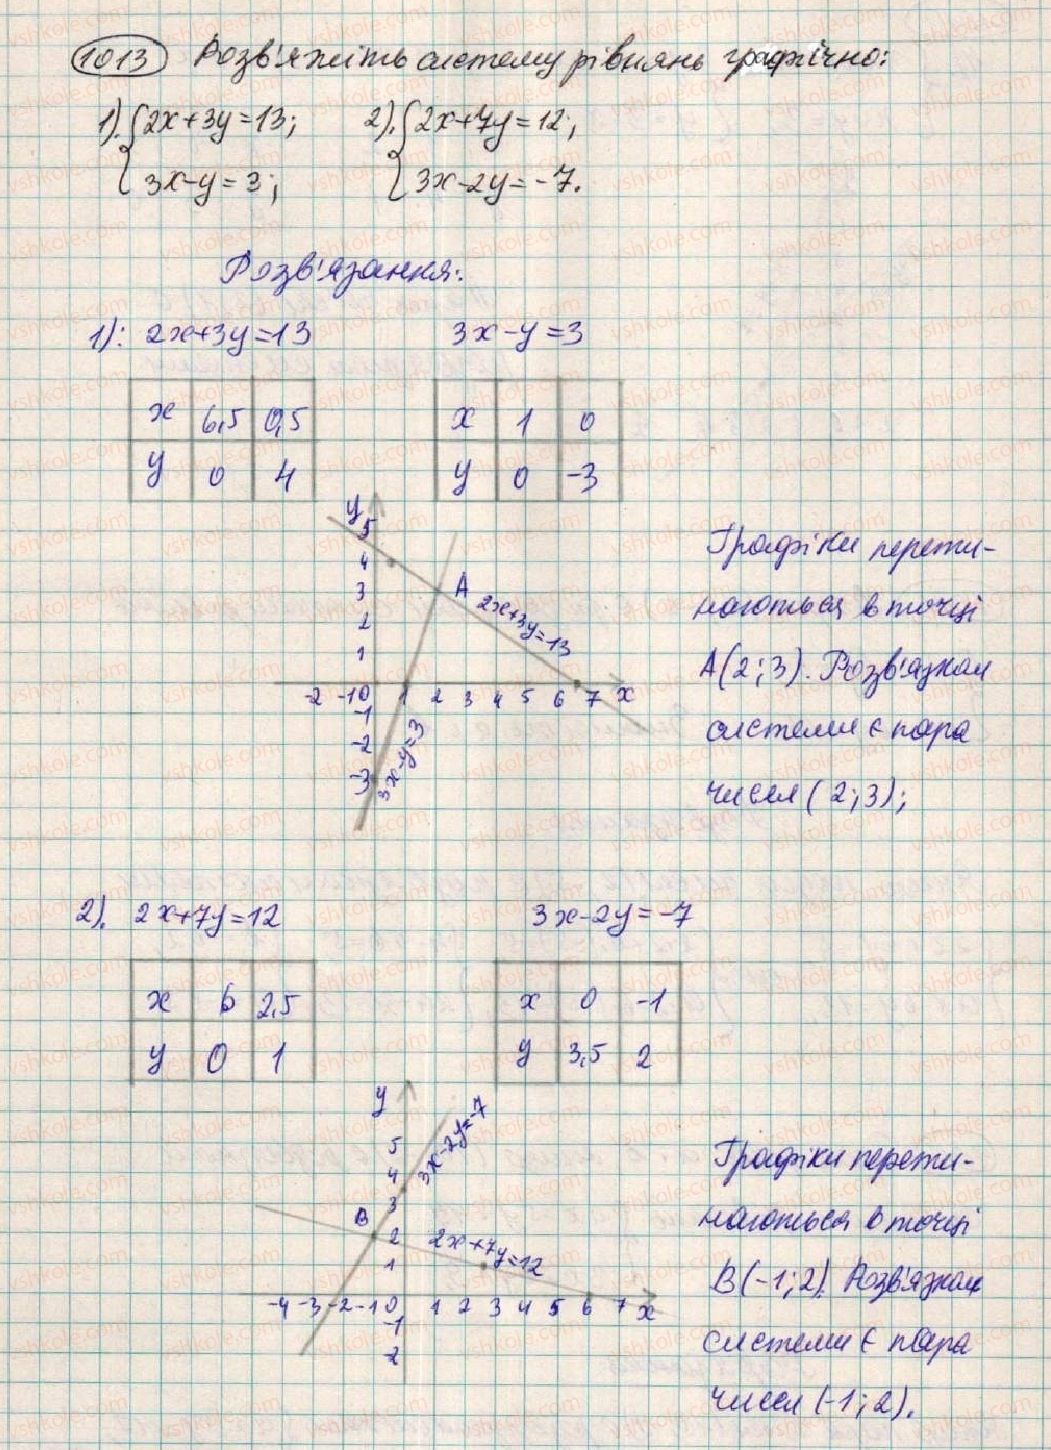 1013 Розв'яжіть систему рівнянь графічно:
1). { 2x+3y=13; 2). { 2x+7y=12;
3x-y=3; 3x-2y=-7.
Розв'язання:
1): 2x+3y=13 3x-y=3
x 6,5 0,5 x 1 0
y 0 4 y 0 -3
y
5
4
3 A
2x+3y=13
2
1
-2 -1 0 1 2 3 4 5 6 7 x
-1
-2
-3
3x-y=3
Графіки перети-
наються в точці
A(2;3). Розв'язком
системи є пара
чисел (2;3);
2). 2x+7y=12 3x-2y=-7
x 6 2,5 x 0 -1
y 0 1 y 3,5 2
y
5
4
3
3x-2y=-7
B
2
2x+7y=12
1
-4 -3 -2 -1 0 1 2 3 4 5 6 7 x
-1
-2
Графіки перети-
наються в точці
B(-1;2). Розв'язком
системи є пара
чисел (-1;2).
vshkole.com